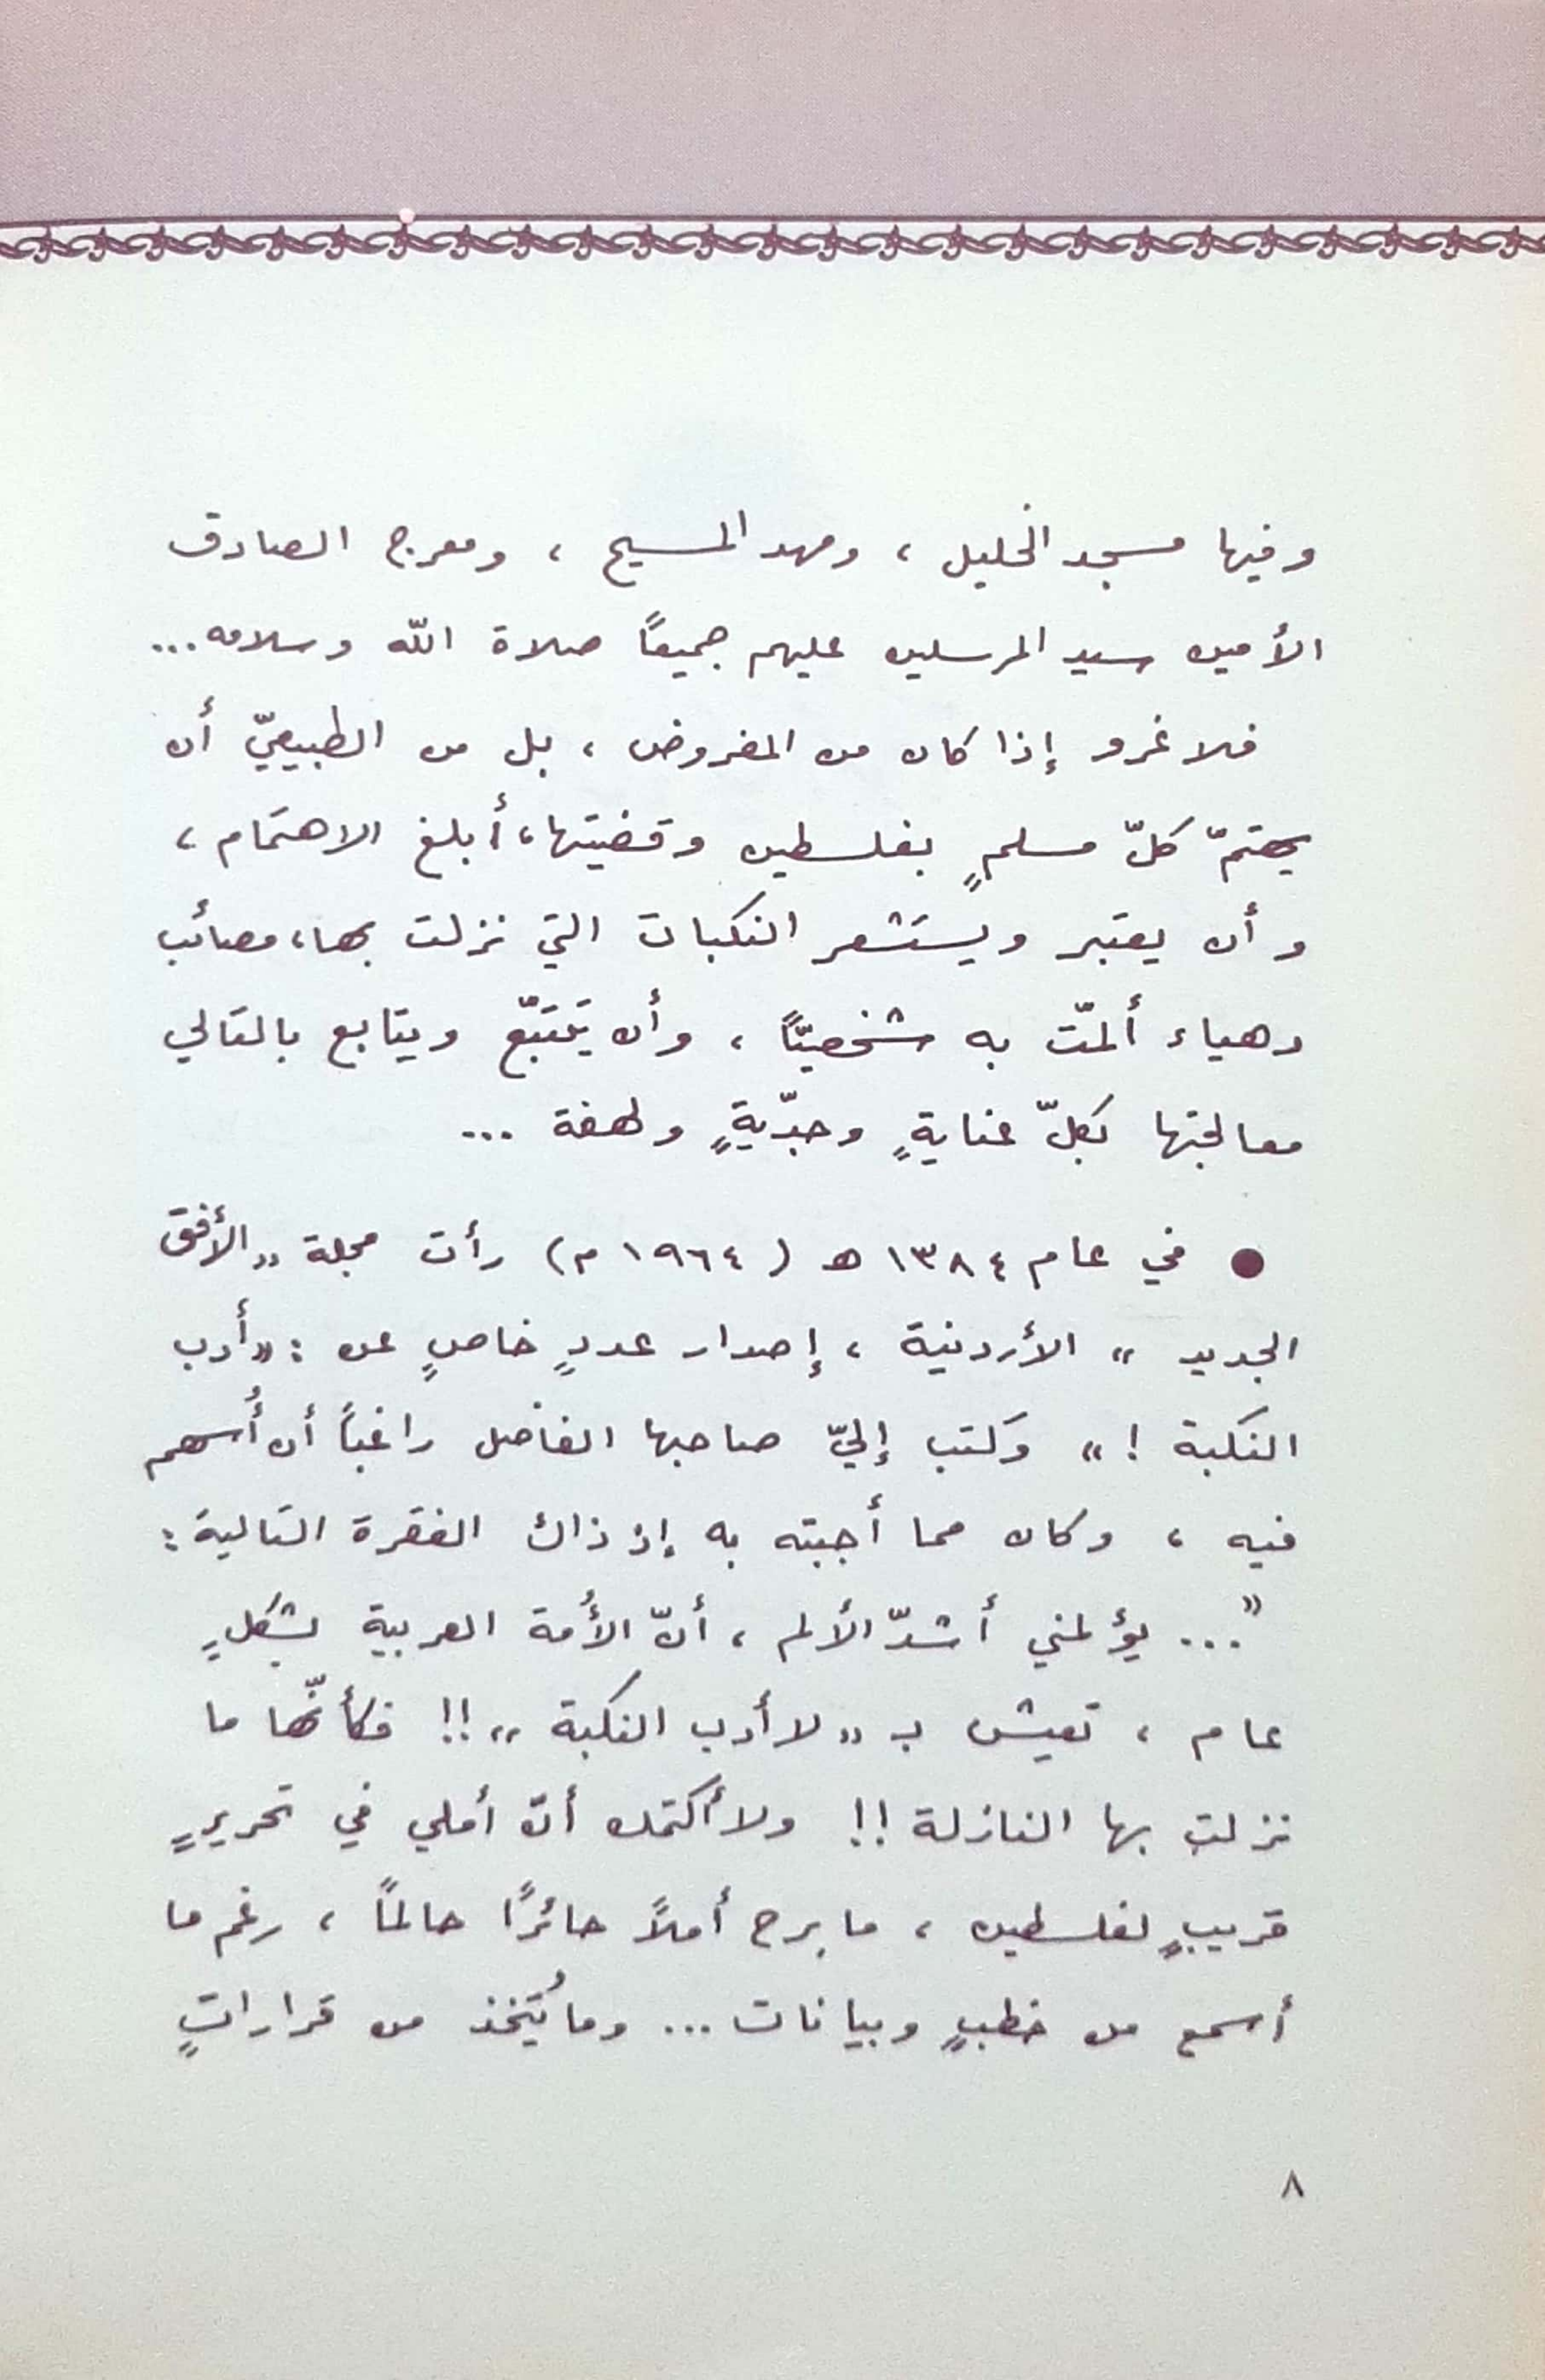 وفيها مسجد الخليل ، ومهد المسيح ، ومعرج الصادق
الأمين سيد المرسلين عليهم جميعاً صلاة الله وسلامه...
فلا غرو إذا كان من المفروض ، بل من الطبيعيّ أن
يهتمّ كلّ مسلمٍ بفلسطين وقضيتها، أبلغ الاهتمام ،
وأن يعتبر ويستشعر النكبات التي نزلت بها، مصائب
دهياء ألمّت به شخصيّاً ، وأن يَتَتَبّع ويتابع بالتالي
معالجتها بكلّ عنايةٍ وجدّيةٍ ولهفة ...
● في عام ١٣٨٤ ه ( ١٩٦٤ م) رأت مجلة «الأفق
الجديد» الأردنية ، إصدار عددٍ خاصٍ عن : «أدب
النكبة ! » وَكتب إليّ صاحبها الفاضل راغباً أن أُسهم
فيه ، وكان مما أجبته به إذ ذاك الفقرة التالية :
«... يؤلمني أشدّ الألم ، أنّ الأُمة العربية بشكلٍ
عام ، تعيش بـ «لا أدب النكبة» !! فكأنّها ما
نزلت بها النازلة !! ولا أكتمك أنّ أملي في تحريرٍ
قريبٍ لفلسطين ، ما برح أملاً حائرًا حالماً ، رغم ما
أسمع من خطبٍ وبيانات ... وما يُتّخذ من قراراتٍ
٨